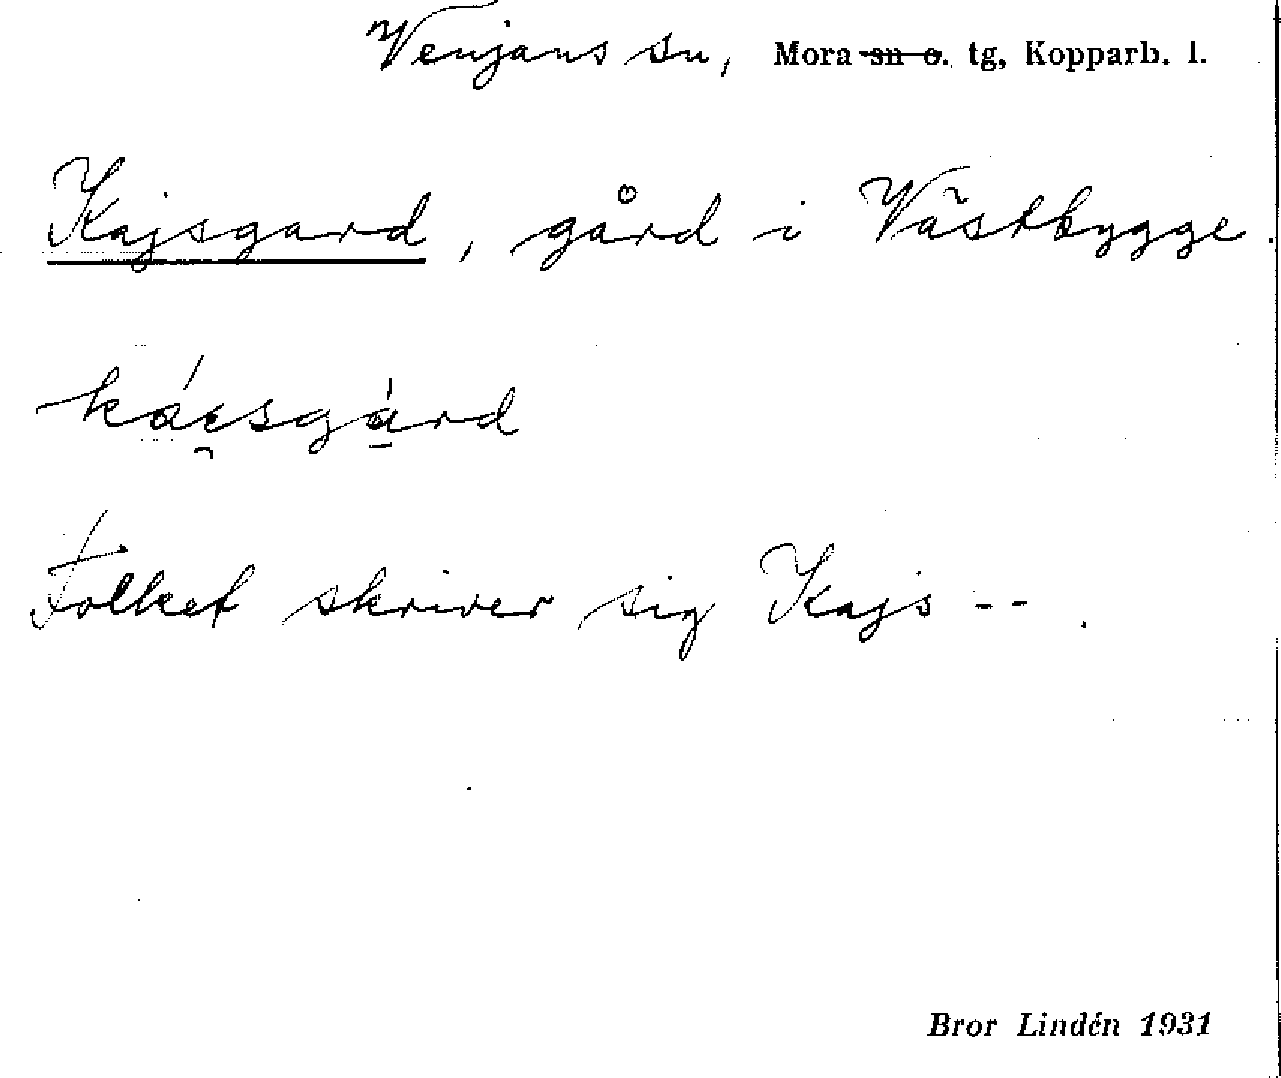 Venjans sn, Mora sn o. tg, Kopparb. l.
Kajsgard, gård i Västbygge.
káesgàrd
Folket skriver sig Kajs --.
Bror Lindén 1931